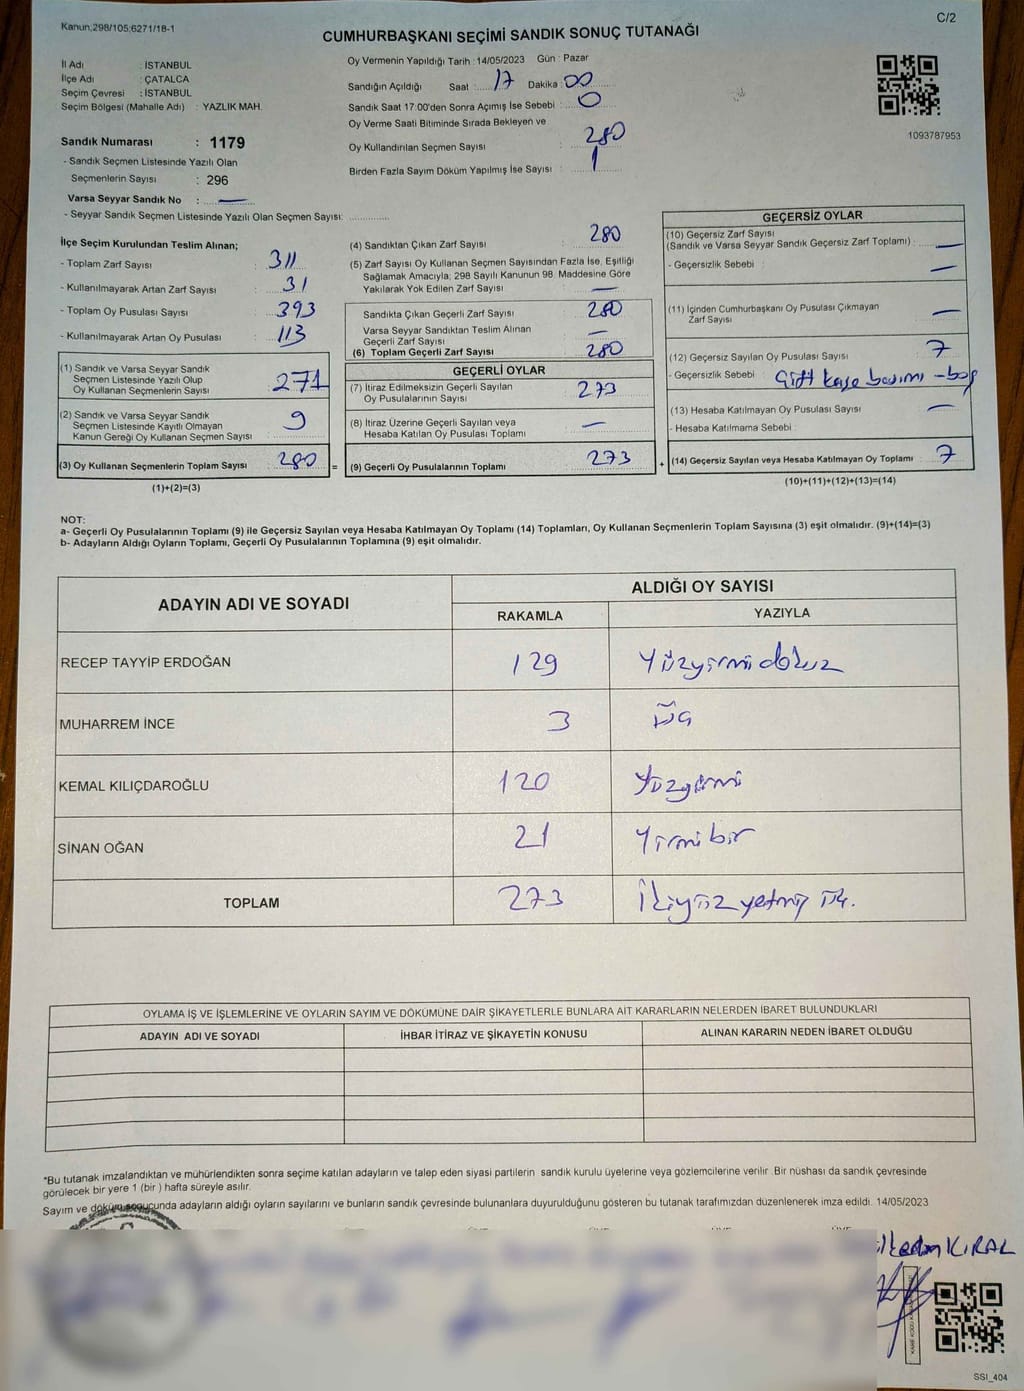 Kanun:298/105;6271/18-1
C/2
CUMHURBAŞKANI SEÇİMİ SANDIK SONUÇ TUTANAĞI
İl Adı : İSTANBUL
İlçe Adı : ÇATALCA
Seçim Çevresi : İSTANBUL
Seçim Bölgesi (Mahalle Adı) : YAZLIK MAH.
Sandık Numarası : 1179
- Sandık Seçmen Listesinde Yazılı Olan
Seçmenlerin Sayısı : 296
Varsa Seyyar Sandık No : —
- Seyyar Sandık Seçmen Listesinde Yazılı Olan Seçmen Sayısı: ..............
Oy Vermenin Yapıldığı Tarih : 14/05/2023 Gün : Pazar
Sandığın Açıldığı Saat : 17 Dakika : 00
Sandık Saat 17:00'den Sonra Açımış İse Sebebi : 0
Oy Verme Saati Bitiminde Sırada Bekleyen ve
Oy Kullandırılan Seçmen Sayısı : 280
Birden Fazla Sayım Döküm Yapılmış İse Sayısı : 1
1093787953
İlçe Seçim Kurulundan Teslim Alınan;
- Toplam Zarf Sayısı : 311
- Kullanılmayarak Artan Zarf Sayısı : 31
- Toplam Oy Pusulası Sayısı : 393
- Kullanılmayarak Artan Oy Pusulası : 113
(1) Sandık ve Varsa Seyyar Sandık
Seçmen Listesinde Yazılı Olup
Oy Kullanan Seçmenlerin Sayısı : 271
(2) Sandık ve Varsa Seyyar Sandık
Seçmen Listesinde Kayıtlı Olmayan
Kanun Gereği Oy Kullanan Seçmen Sayısı : 9
(3) Oy Kullanan Seçmenlerin Toplam Sayısı : 280 =
(1)+(2)=(3)
(4) Sandıktan Çıkan Zarf Sayısı : 280
(5) Zarf Sayısı Oy Kullanan Seçmen Sayısından Fazla İse, Eşitliği
Sağlamak Amacıyla; 298 Sayılı Kanunun 98. Maddesine Göre
Yakılarak Yok Edilen Zarf Sayısı : —
Sandıkta Çıkan Geçerli Zarf Sayısı : 280
Varsa Seyyar Sandıktan Teslim Alınan
Geçerli Zarf Sayısı : —
(6) Toplam Geçerli Zarf Sayısı : 280
GEÇERLİ OYLAR
(7) İtiraz Edilmeksizin Geçerli Sayılan
Oy Pusulalarının Sayısı : 273
(8) İtiraz Üzerine Geçerli Sayılan veya
Hesaba Katılan Oy Pusulası Toplamı : —
(9) Geçerli Oy Pusulalarının Toplamı : 273 +
GEÇERSİZ OYLAR
(10) Geçersiz Zarf Sayısı
(Sandık ve Varsa Seyyar Sandık Geçersiz Zarf Toplamı) : —
- Geçersizlik Sebebi : —
(11) İçinden Cumhurbaşkanı Oy Pusulası Çıkmayan
Zarf Sayısı : —
(12) Geçersiz Sayılan Oy Pusulası Sayısı : 7
- Geçersizlik Sebebi : Çift kaşe basımı - boş
(13) Hesaba Katılmayan Oy Pusulası Sayısı : —
- Hesaba Katılmama Sebebi :
(14) Geçersiz Sayılan veya Hesaba Katılmayan Oy Toplamı : 7
(10)+(11)+(12)+(13)=(14)
NOT:
a- Geçerli Oy Pusulalarının Toplamı (9) ile Geçersiz Sayılan veya Hesaba Katılmayan Oy Toplamı (14) Toplamları, Oy Kullanan Seçmenlerin Toplam Sayısına (3) eşit olmalıdır. (9)+(14)=(3)
b- Adayların Aldığı Oyların Toplamı, Geçerli Oy Pusulalarının Toplamına (9) eşit olmalıdır.
ADAYIN ADI VE SOYADI
ALDIĞI OY SAYISI
RAKAMLA YAZIYLA
RECEP TAYYİP ERDOĞAN 129 Yüzyirmidokuz
MUHARREM İNCE 3 üç
KEMAL KILIÇDAROĞLU 120 Yüzyirmi
SİNAN OĞAN 21 Yirmibir
TOPLAM 273 İkiyüzyetmiş üç.
OYLAMA İŞ VE İŞLEMLERİNE VE OYLARIN SAYIM VE DÖKÜMÜNE DAİR ŞİKAYETLERLE BUNLARA AİT KARARLARIN NELERDEN İBARET BULUNDUKLARI
ADAYIN ADI VE SOYADI İHBAR İTİRAZ VE ŞİKAYETİN KONUSU ALINAN KARARIN NEDEN İBARET OLDUĞU
*Bu tutanak imzalandıktan ve mühürlendikten sonra seçime katılan adayların ve talep eden siyasi partilerin sandık kurulu üyelerine veya gözlemcilerine verilir. Bir nüshası da sandık çevresinde
görülecek bir yere 1 (bir ) hafta süreyle asılır.
Sayım ve döküm sonucunda adayların aldığı oyların sayılarını ve bunların sandık çevresinde bulunanlara duyurulduğunu gösteren bu tutanak tarafımızdan düzenlenerek imza edildi. 14/05/2023
KIRAL
SSI_404